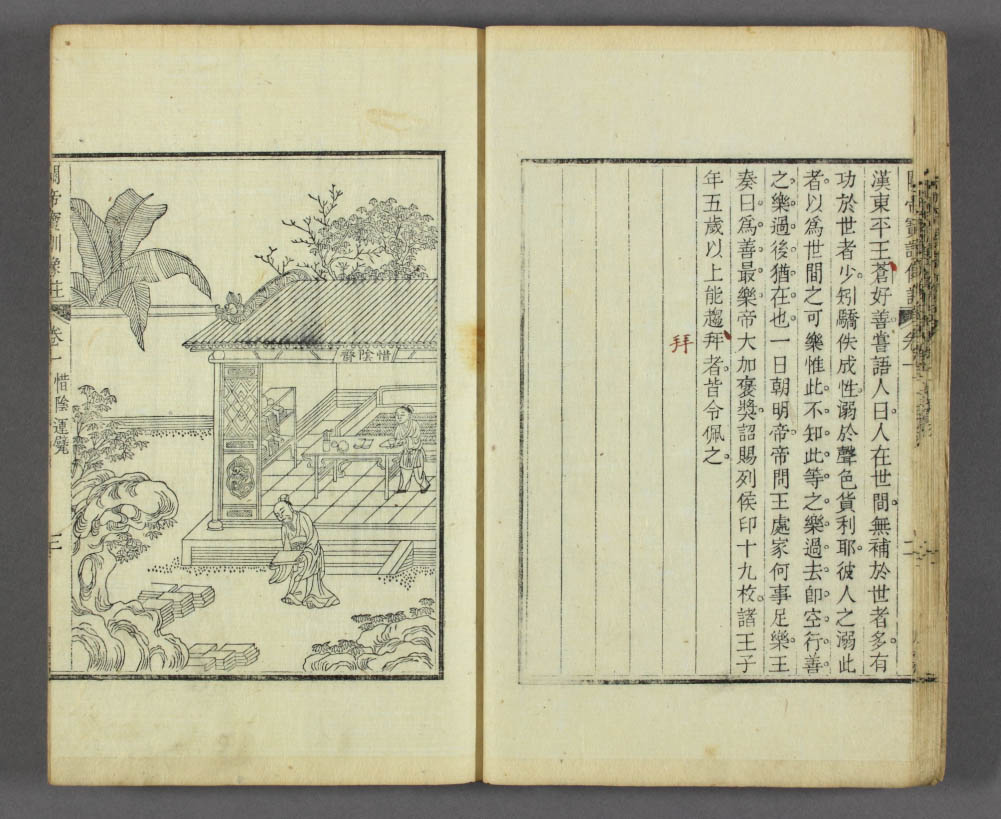 漢東平王蒼好善嘗語人曰人在世間無補於世者多有
功於世者少矧驕佚成性溺於聲色貨利耶彼人之溺此
者以爲世間之可樂惟此不知此等之樂過去卽空行善
之樂過後猶在也一日朝明帝帝問王處家何事足樂王
奏曰爲善最樂帝大加褒獎詔賜列侯印十九枚諸王子
年五歲以上能趨拜者皆令佩之
拜
惜陰齋
關帝寶訓像註
卷一
惜陰運甓
三